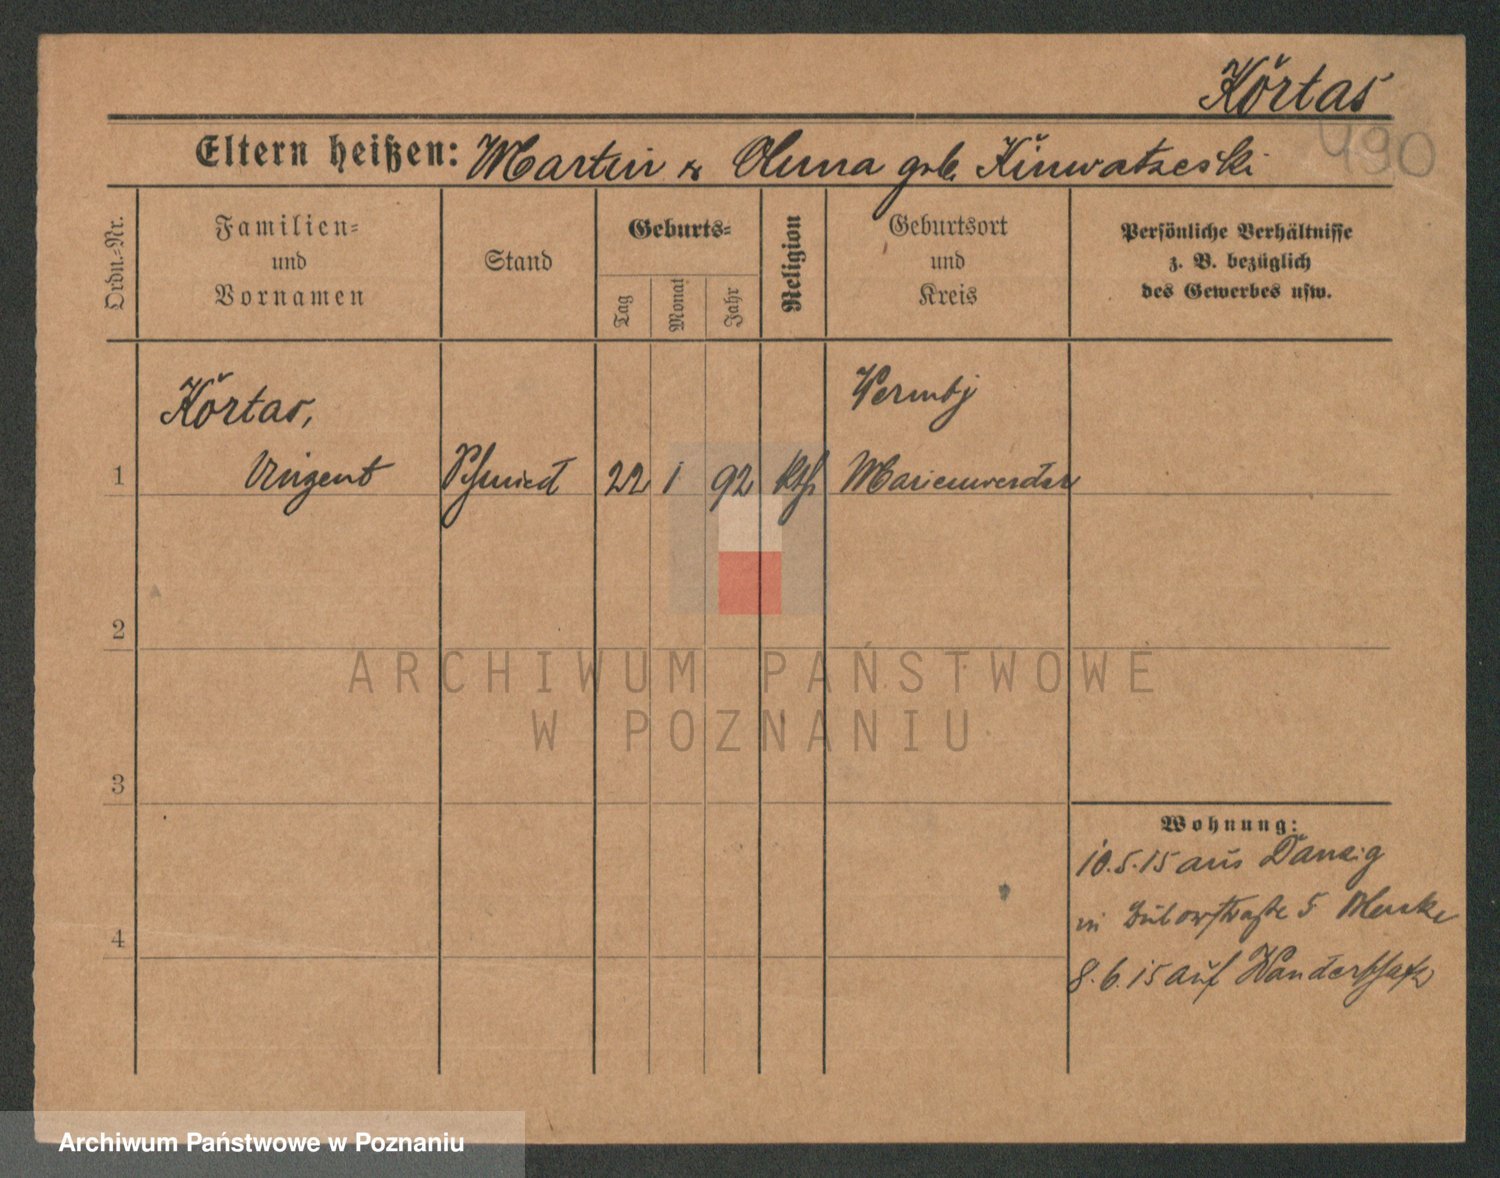 Körtas
490
Eltern heißen: Martin & Anna geb.
Ordn.-Nr.
Familien-
und
Vornamen
Stand
Geburts-
Tag
Monat
Jahr
Religion
Geburtsort
und
Kreis
Persönliche Verhältnisse
z. B. bezüglich
des Gewerbes usw.
Körtas,
1 Vinzent Schmied 22 1 92 Kth Marienwerder
2
3
4
Wohnung:
10.5.15 aus Danzig
in Bülowstraße 5
8.6.15 auf Wanderschaft
ARCHIWUM PAŃSTWOWE
W POZNANIU
Archiwum Państwowe w Poznaniu